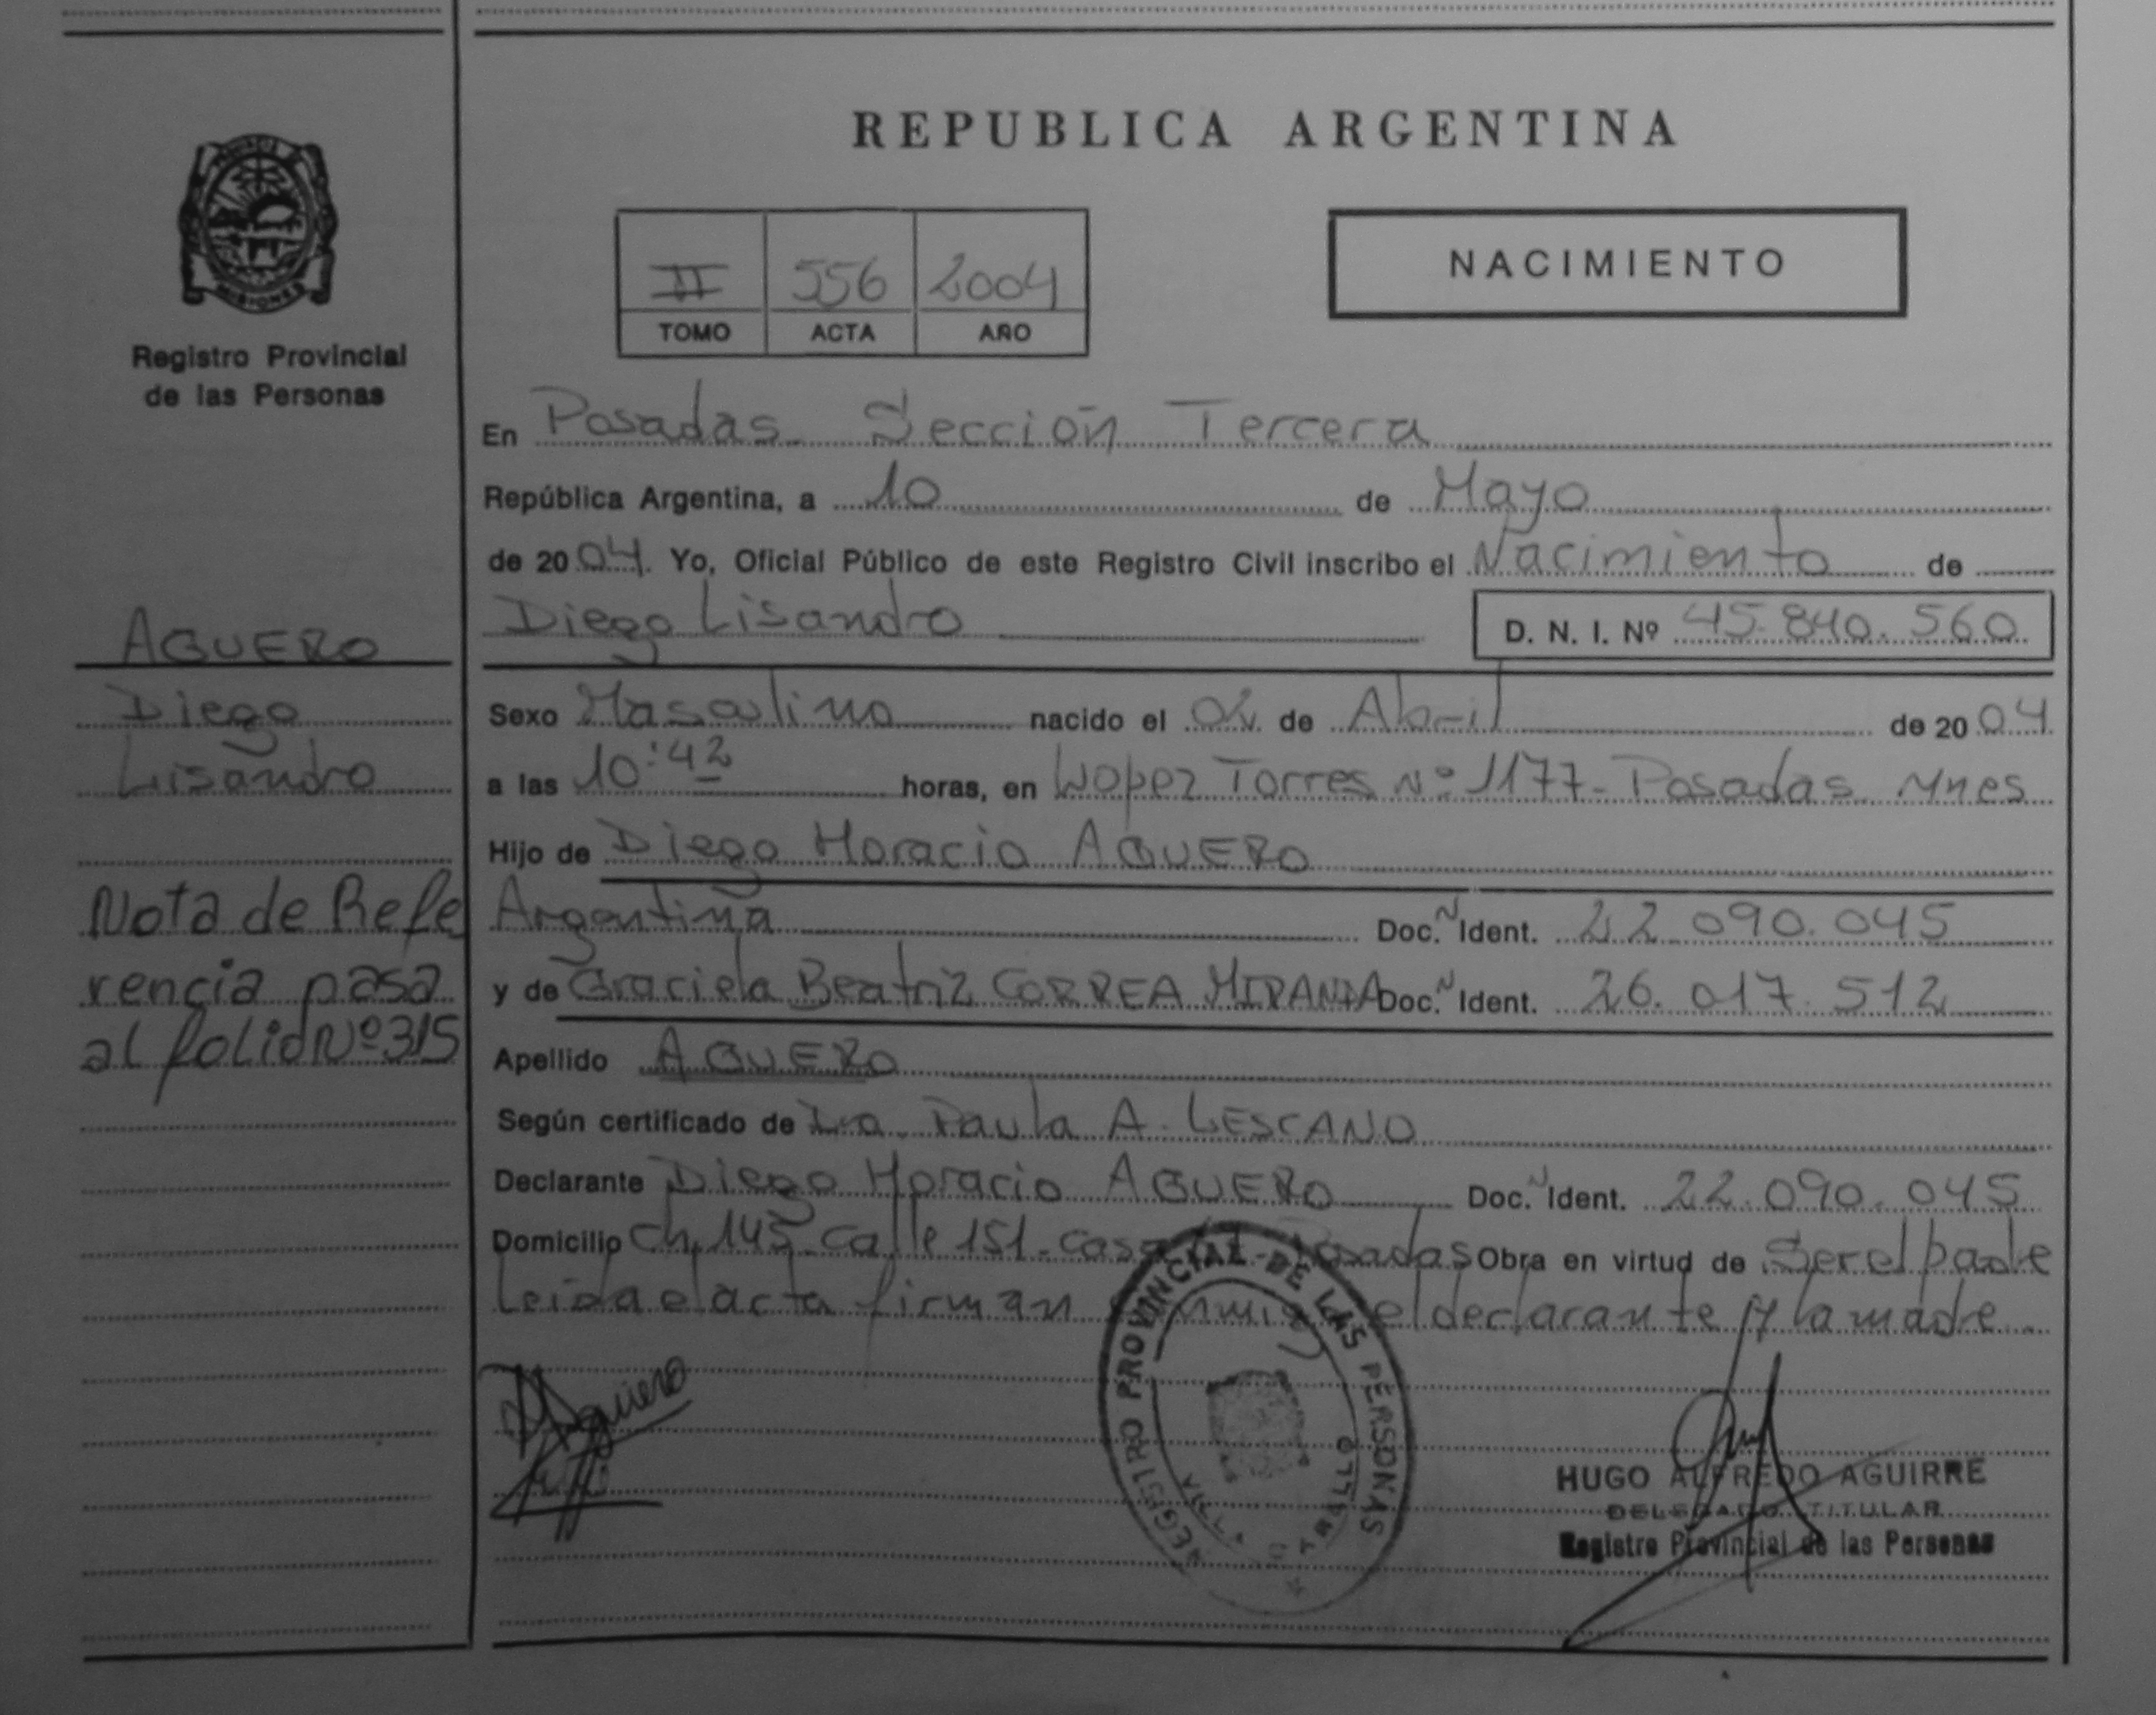 REPUBLICA ARGENTINA
MISIONES
Registro Provincial
de las Personas
II 556 2004
TOMO ACTA AÑO
NACIMIENTO
En Posadas Sección Tercera
República Argentina, a 10 de Mayo
de 2004. Yo, Oficial Público de este Registro Civil inscribo el Nacimiento de
Diego Lisandro D. N. I. Nº 45.840.560
AGUERO
Diego
Lisandro
Sexo Masculino nacido el 02 de Abril de 2004
a las 10:42 horas, en Lopez Torres Nº 1177 - Posadas Mnes
Hijo de Diego Horacio AGUERO
Argentina Doc. Ident. 22.090.045
y de Graciela Beatriz CORREA MIRANDA Doc. Ident. 26.017.512
Nota de Refe
rencia pasa
al folio Nº 315
Apellido AGUERO
Según certificado de Dra. Paula A. LESCANO
Declarante Diego Horacio AGUERO Doc. Ident. 22.090.045
Domicilio Ch. 145 - Calle 151 - Casa Posadas Obra en virtud de Ser el padre
Leida el acta firman conmigo el declarante y la madre
Aguero
REGISTRO PROVINCIAL DE LAS PERSONAS
HUGO ALFREDO AGUIRRE
DELEGADO TITULAR
Registro Provincial de las Personas